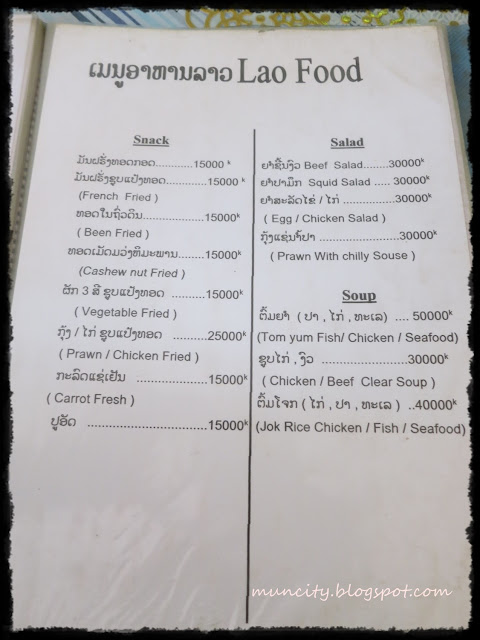 ເມນູອາຫານລາວ Lao Food
Snack
ມັນຝຣັ່ງທອດກອດ............15000 k
ມັນຝຣັ່ງຊູບແປ້ງທອດ............15000 k
(French Fried )
ທອດໃນຖົ່ວດິນ..................15000k
( Been Fried )
ທອດເມັດມວ່ງຫິມະພານ.........15000k
(Cashew nut Fried )
ຜັກ 3 ສີ ຊູບແປ້ງທອດ ..........15000k
( Vegetable Fried )
ກຸ້ງ / ໄກ່ ຊູບແປ້ງທອດ .........25000k
( Prawn / Chicken Fried )
ກະລົດແຊ່ເຢັນ ...................15000k
( Carrot Fresh )
ປູອັດ ................................15000k
Salad
ຍຳຊີ້ນງົວ Beef Salad.......30000k
ຍຳປາມຶກ Squid Salad ..... 30000k
ຍຳສະລັດໄຂ່ / ໄກ່ ...............30000k
( Egg / Chicken Salad )
ກຸ້ງແຊ່ນ້ຳປາ ........................30000k
( Prawn With chilly Souse )
Soup
ຕົ້ມຍຳ ( ປາ , ໄກ່ , ທະເລ) .... 50000k
(Tom yum Fish/ Chicken / Seafood)
ຊູບໄກ່ , ງົວ .......................30000k
( Chicken / Beef Clear Soup )
ຕົ້ມໂຈກ ( ໄກ່ , ປາ , ທະເລ ) ..40000k
(Jok Rice Chicken / Fish / Seafood)
muncity.blogspot.com